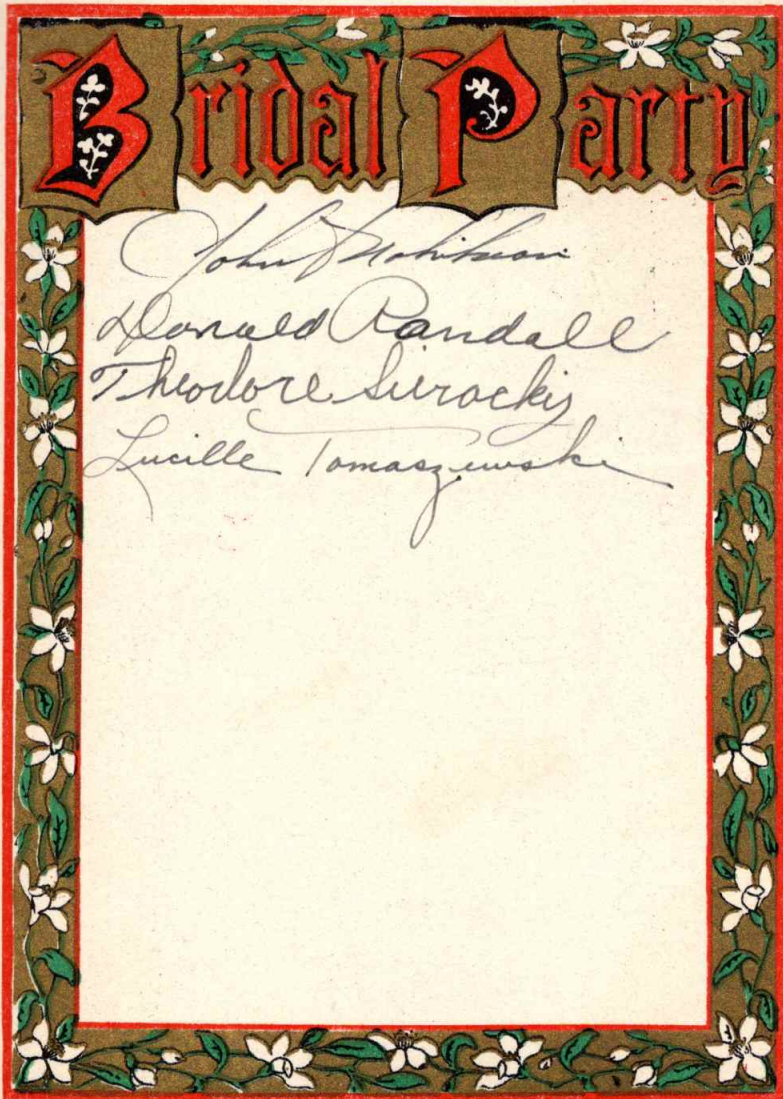 Bridal Party
John
Donald Randall
Theodore Sierocky
Lucille Tomaszewski